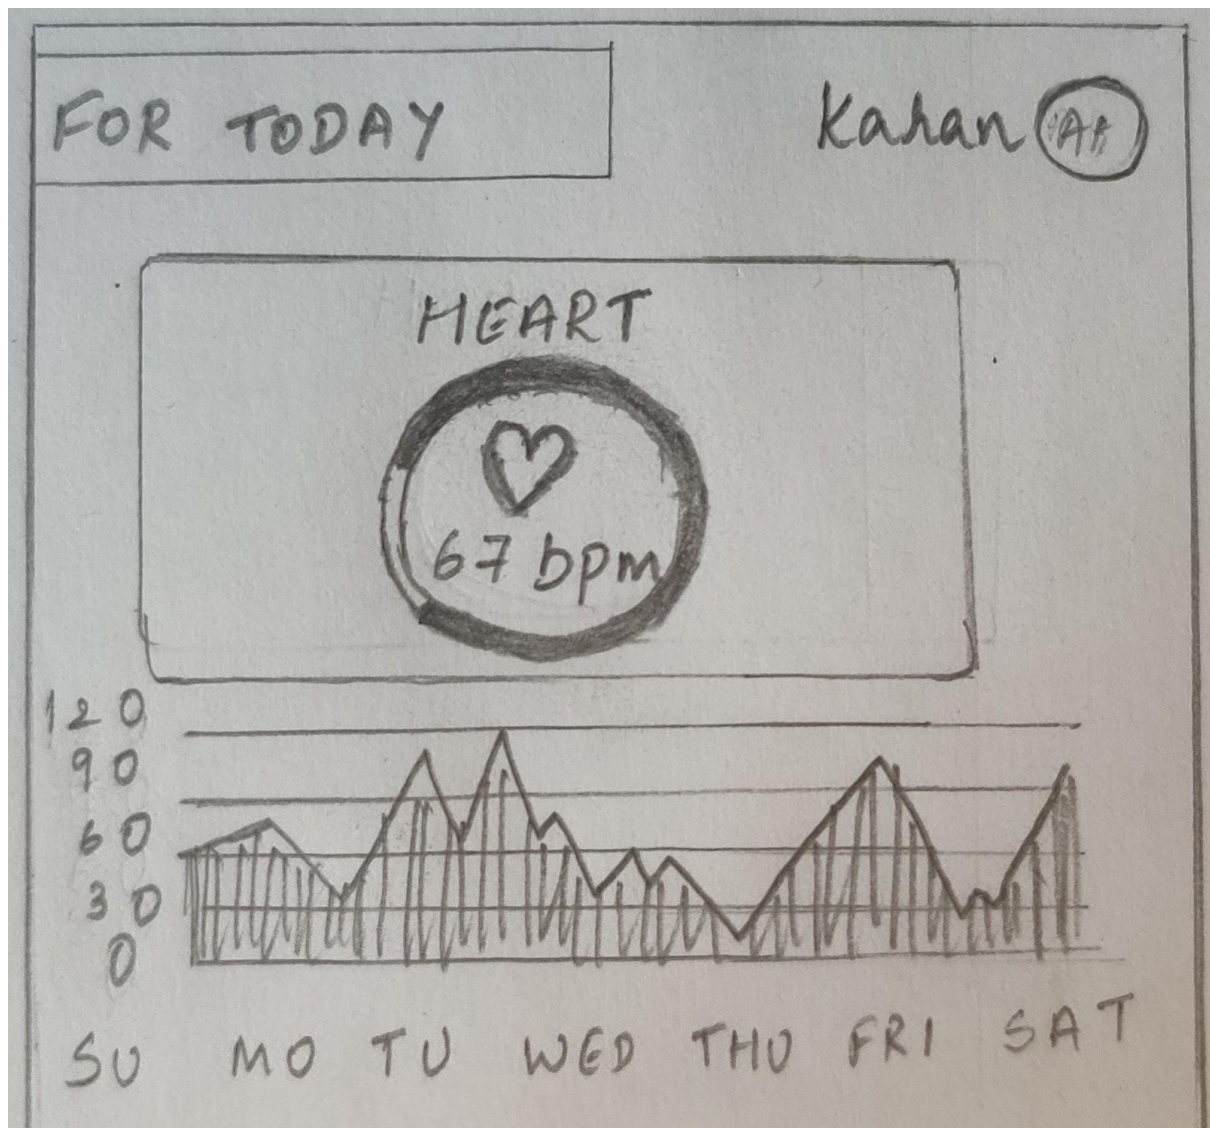 FOR TODAY
Kahan
HEART
67 bpm
120
90
60
30
0
SU MO TU WED THU FRI SAT